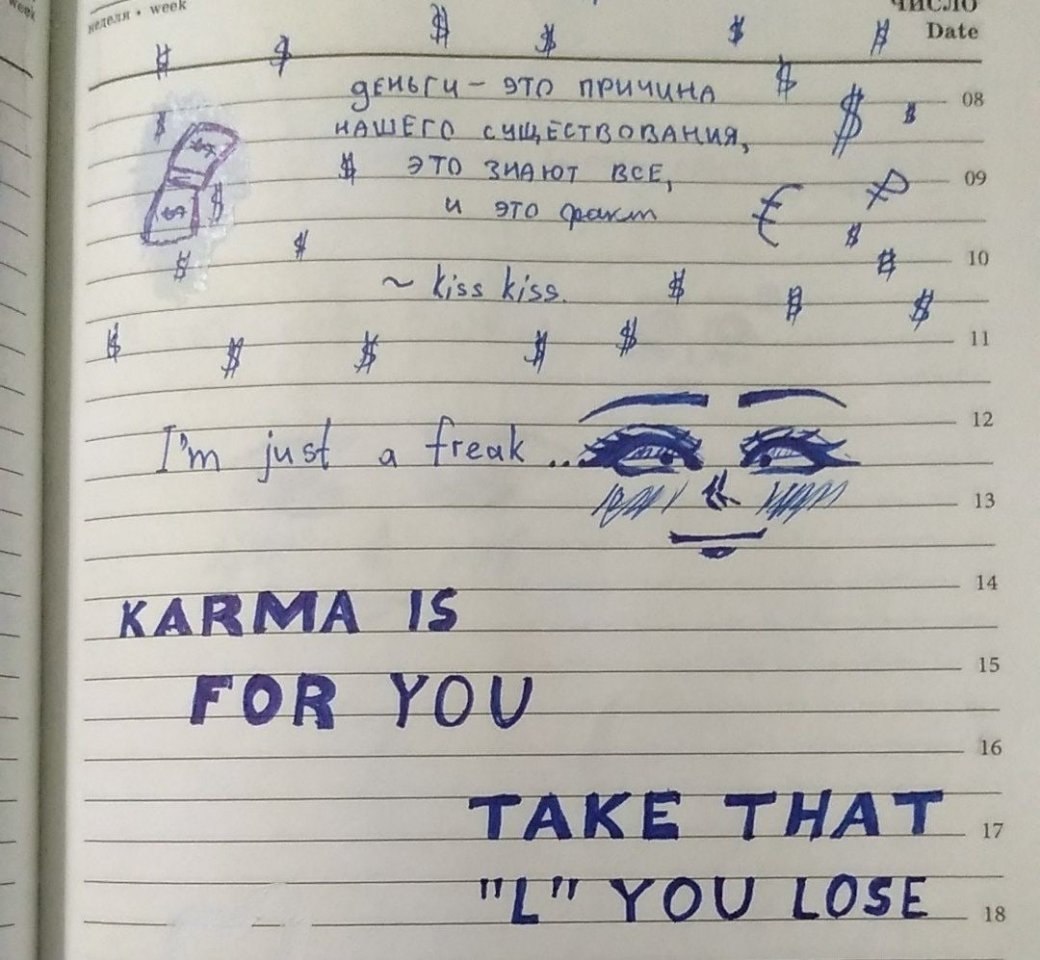 неделя • week
число
Date
$ $ $ $ $ $
деньги – это причина $
08
нашего существования, $ $
$ это знают все,
09
и это факт € ₽
$ $
10
~ kiss kiss.
$ $ $ $
11
$ $ $ $ $
12
I'm just a freak ...
13
14
KARMA IS
15
FOR YOU
16
TAKE THAT
17
"L" YOU LOSE
18